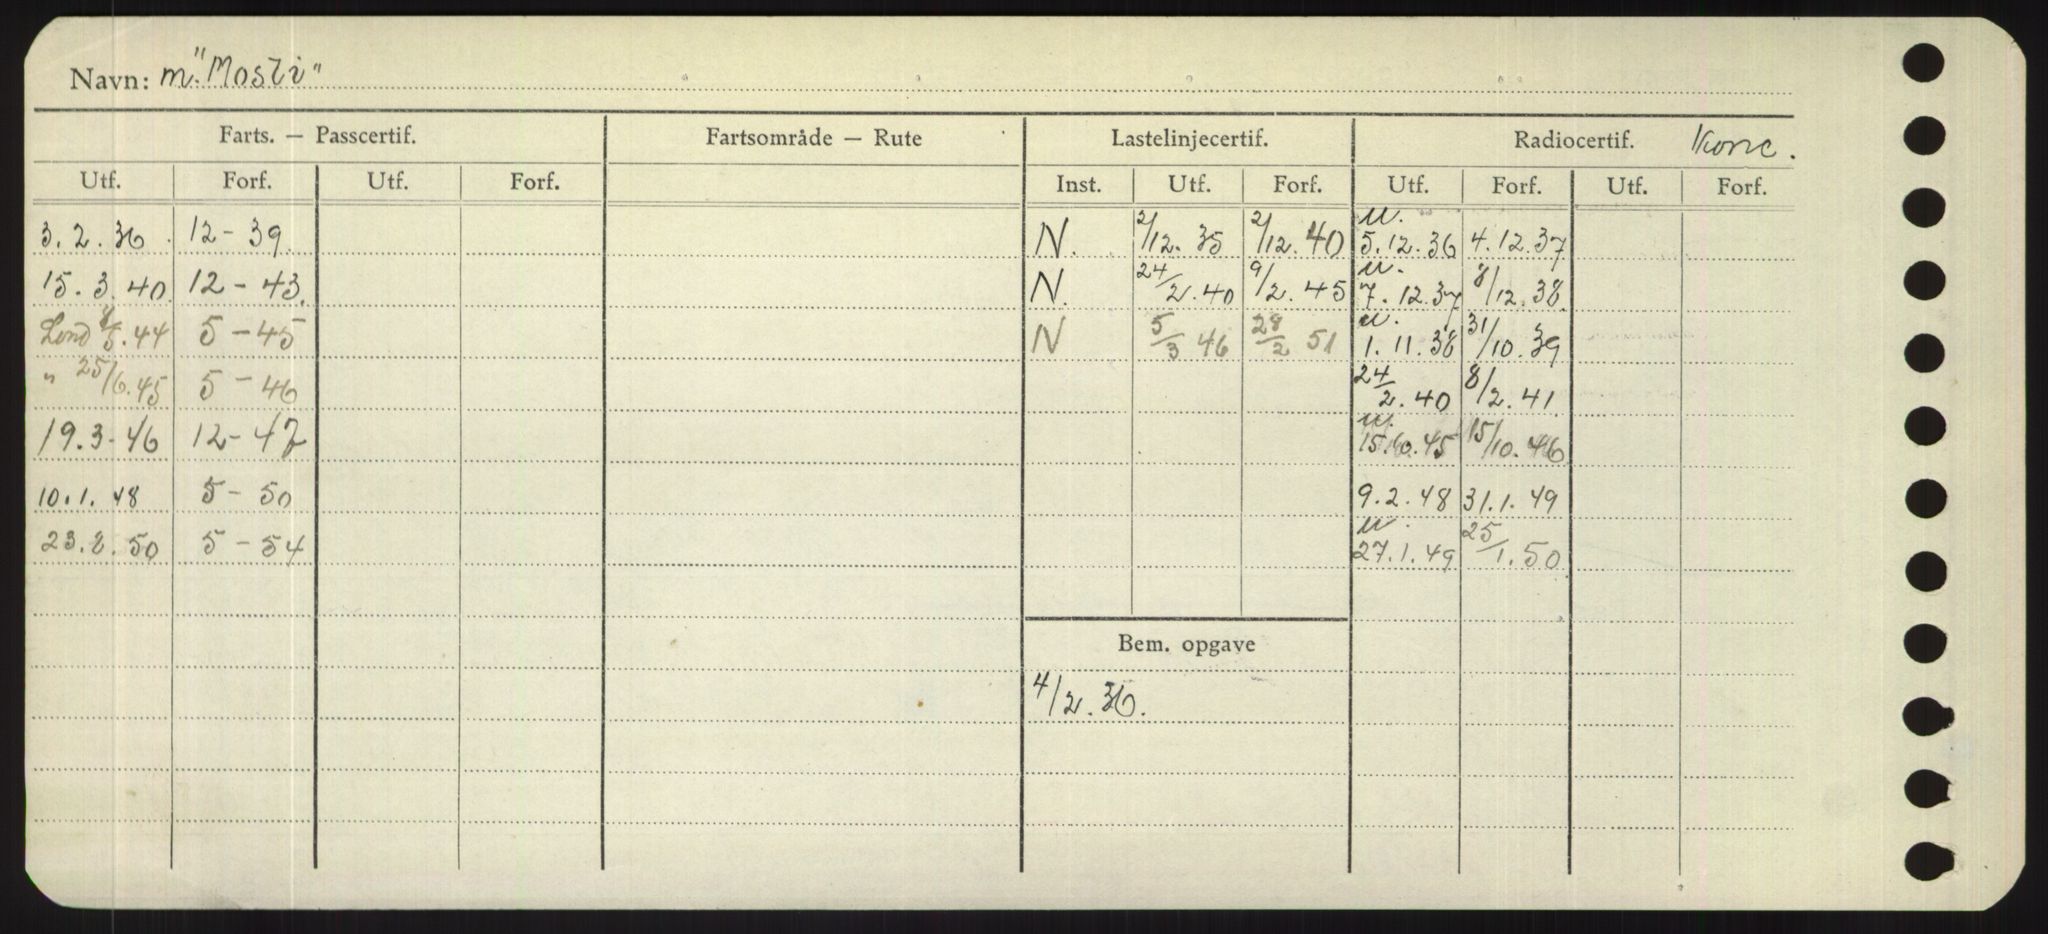 Navn: m. "Mosli"
Farts. — Passcertif. Fartsområde — Rute Lastelinjecertif. Radiocertif. Konc.
Utf. Forf. Utf. Forf. Inst. Utf. Forf. Utf. Forf. Utf. Forf.
3.2.36. 12-39. N. 2/12.35 2/12.40 u. 5.12.36 4.12.37
15.3.40. 12-43. N. 24/2.40 9/2.45 u. 7.12.37 8/12.38
Lond 8/5.44 5-45 N 5/3 46 28/2 51 u. 1.11.38 31/10.39
" 25/6.45 5-46 24/2.40 8/2.41
19.3-46 12-47 u. 15.10.45 15/10.46
10.1.48 5-50 9.2.48 31.1.49
23.2.50 5-54 u. 27.1.49 25/1.50
Bem. opgave
4/2.36.